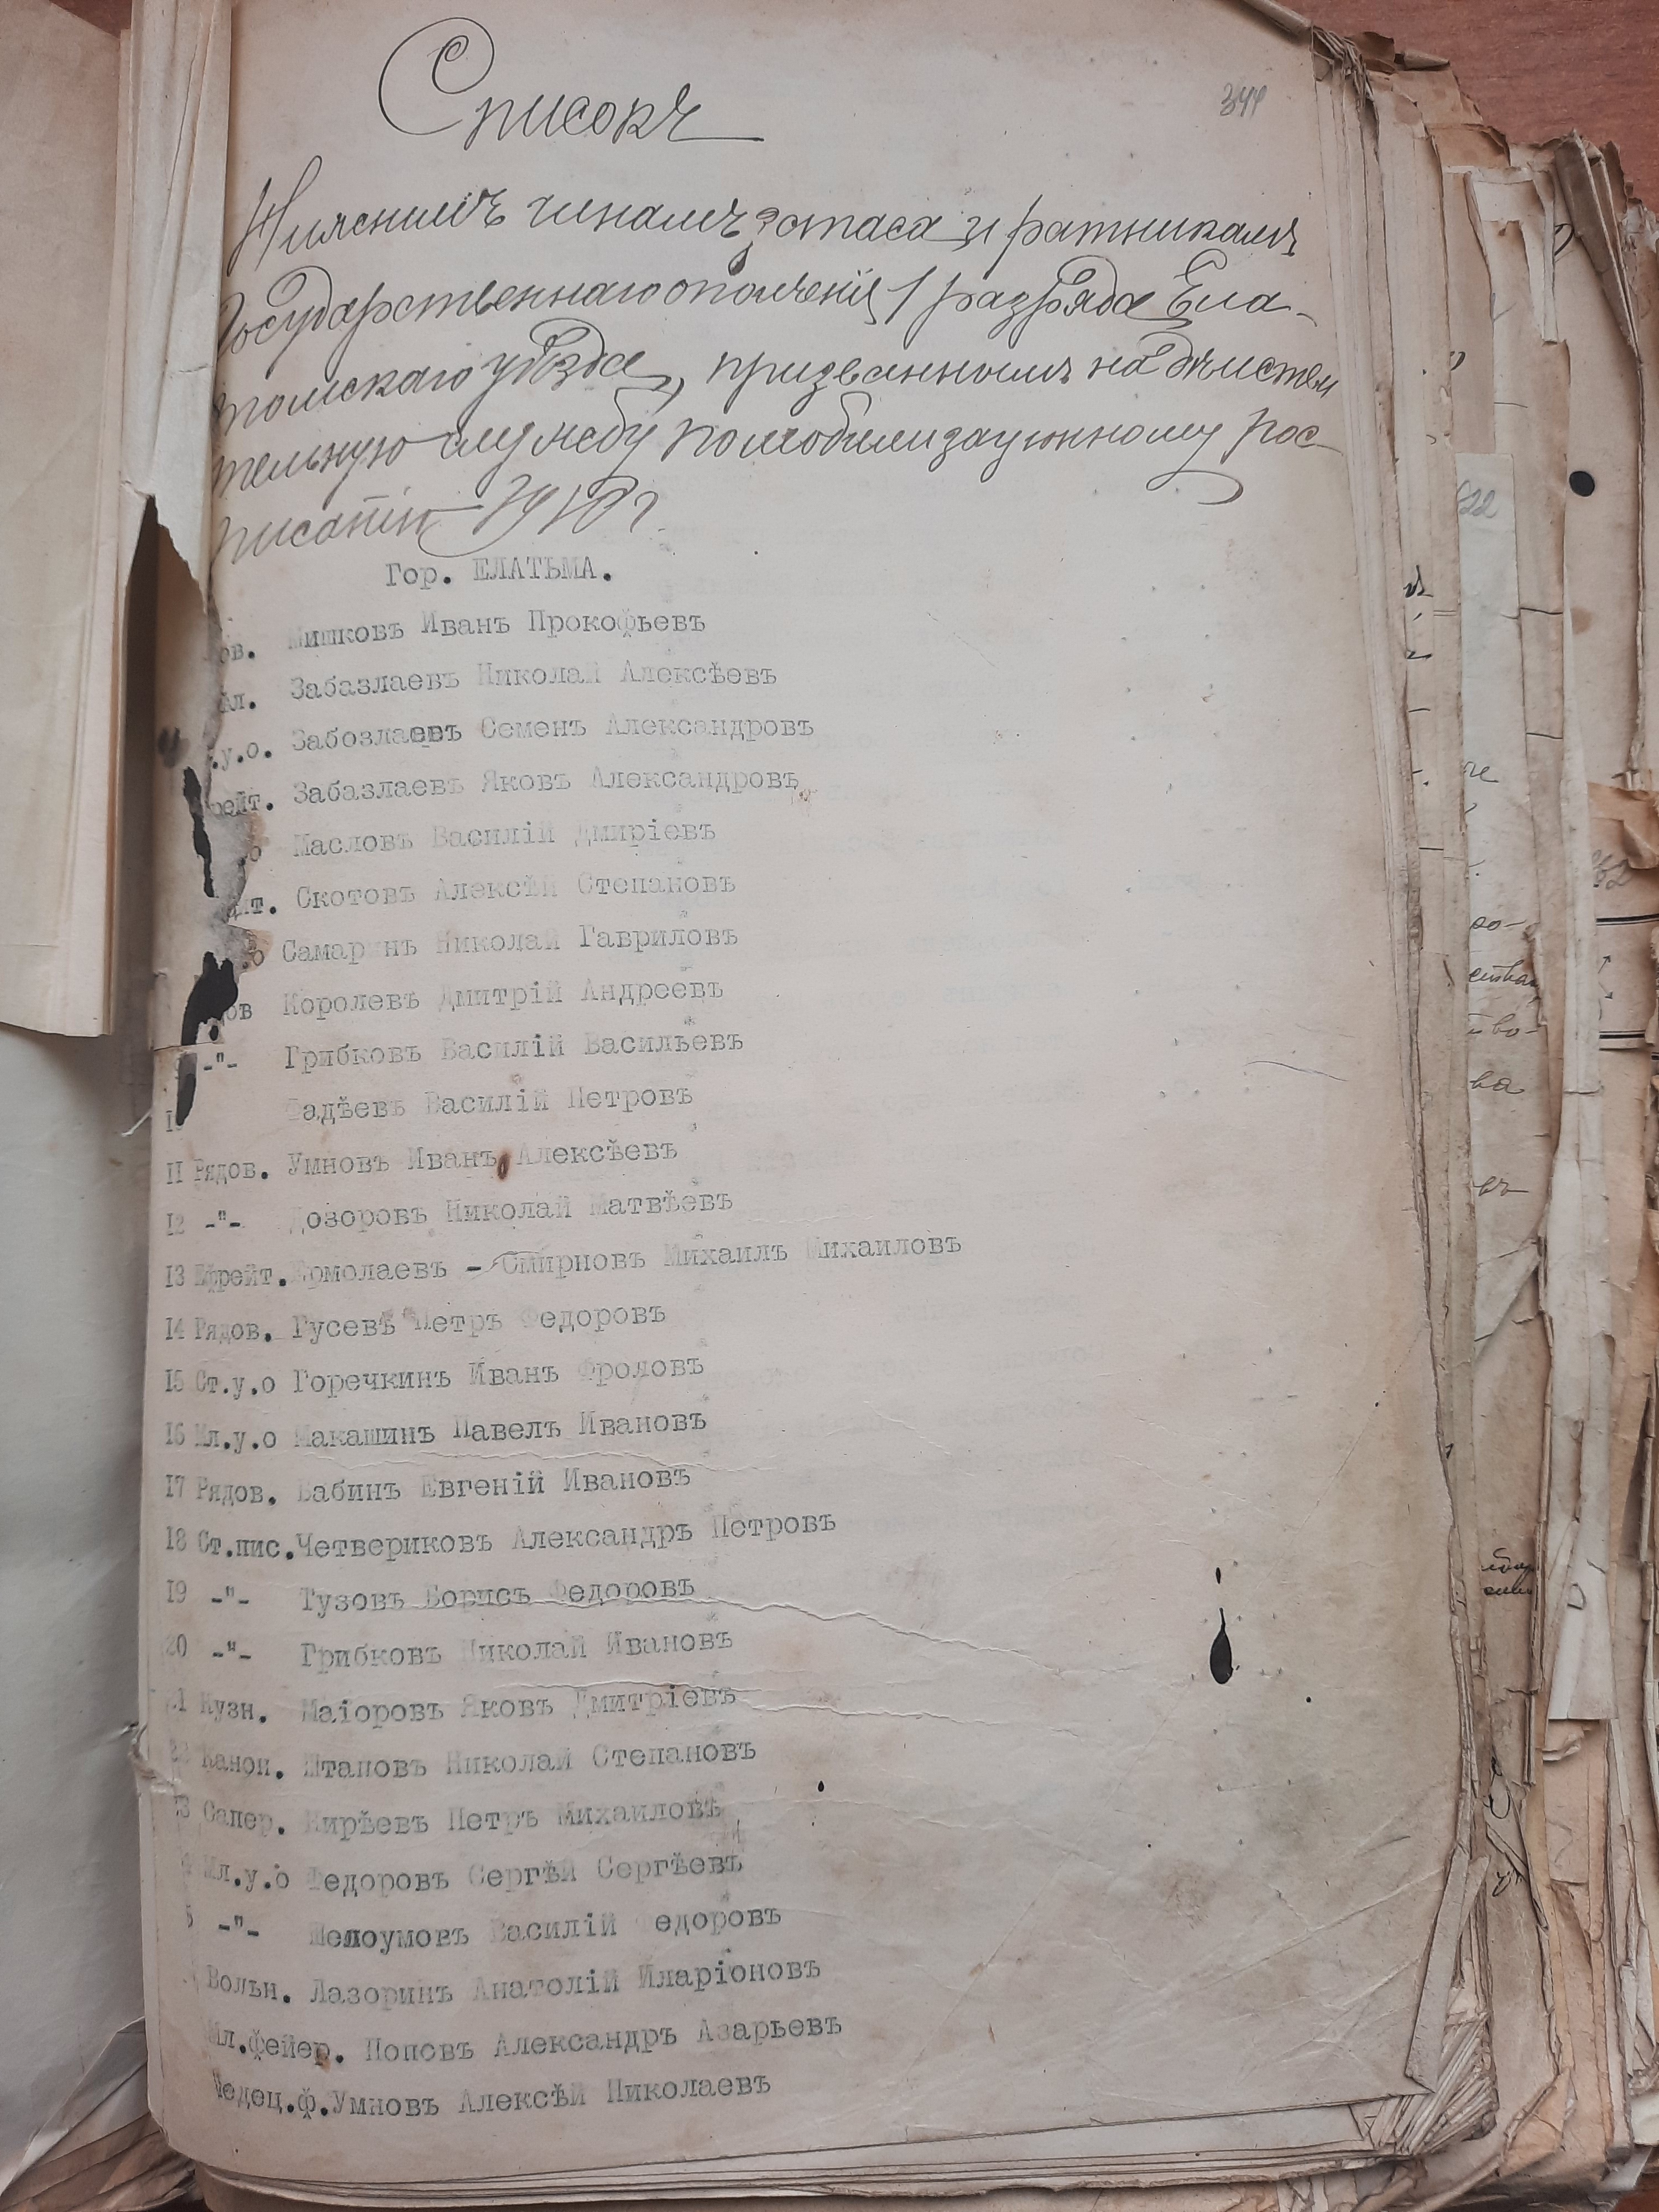 344
Списокъ
Нижнимъ чинамъ запаса и ратникамъ
Государственнаго ополченія 1 разряда Ела-
томскаго уѣзда, призваннымъ на дѣистви
тельную службу по мобилизаціонному рос
писанію 1910 г.
Гор. ЕЛАТЬМА.
ов. Мишковъ Иванъ Прокофьевъ
Забазлаевъ Николай Алексѣевъ
.у.о. Забозлаевъ Семенъ Александровъ
рейт. Забазлаевъ Яковъ Александровъ
о Масловъ Василій Дмиріевъ
йт. Скотовъ Алексѣй Степановъ
.о Самаринъ Николай Гавриловъ
дов Королевъ Дмитрій Андреевъ
-"- Грибковъ Василій Васильевъ
Фадѣевъ Василій Петровъ
II Рядов. Умновъ Иванъ Алексѣевъ
I2 -"- Дозоровъ Николай Матвѣевъ
I3 Ефрейт. Ермолаевъ - Смирновъ Михаилъ Михаиловъ
I4 Рядов. Гусевъ Петръ Федоровъ
I5 Ст.у.о Горечкинъ Иванъ Фроловъ
I6 Мл.у.о Макашинъ Павелъ Ивановъ
I7 Рядов. Бабинъ Евгеній Ивановъ
I8 Ст.пис. Четвериковъ Александръ Петровъ
I9 -"- Тузовъ Борисъ Федоровъ
20 -"- Грибковъ Николай Ивановъ
21 Кузн. Маіоровъ Яковъ Дмитріевъ
22 Канон. Штаповъ Николай Степановъ
23 Сапер. Кирѣевъ Петръ Михаиловъ
4 Мл.у.о Федоровъ Сергѣй Сергѣевъ
5 -"- Шелоумовъ Василій Федоровъ
Вольн. Лазоринъ Анатолій Иларіоновъ
Мл.фейер. Поповъ Александръ Азарьевъ
Медец.ф. Умновъ Алексѣй Николаевъ